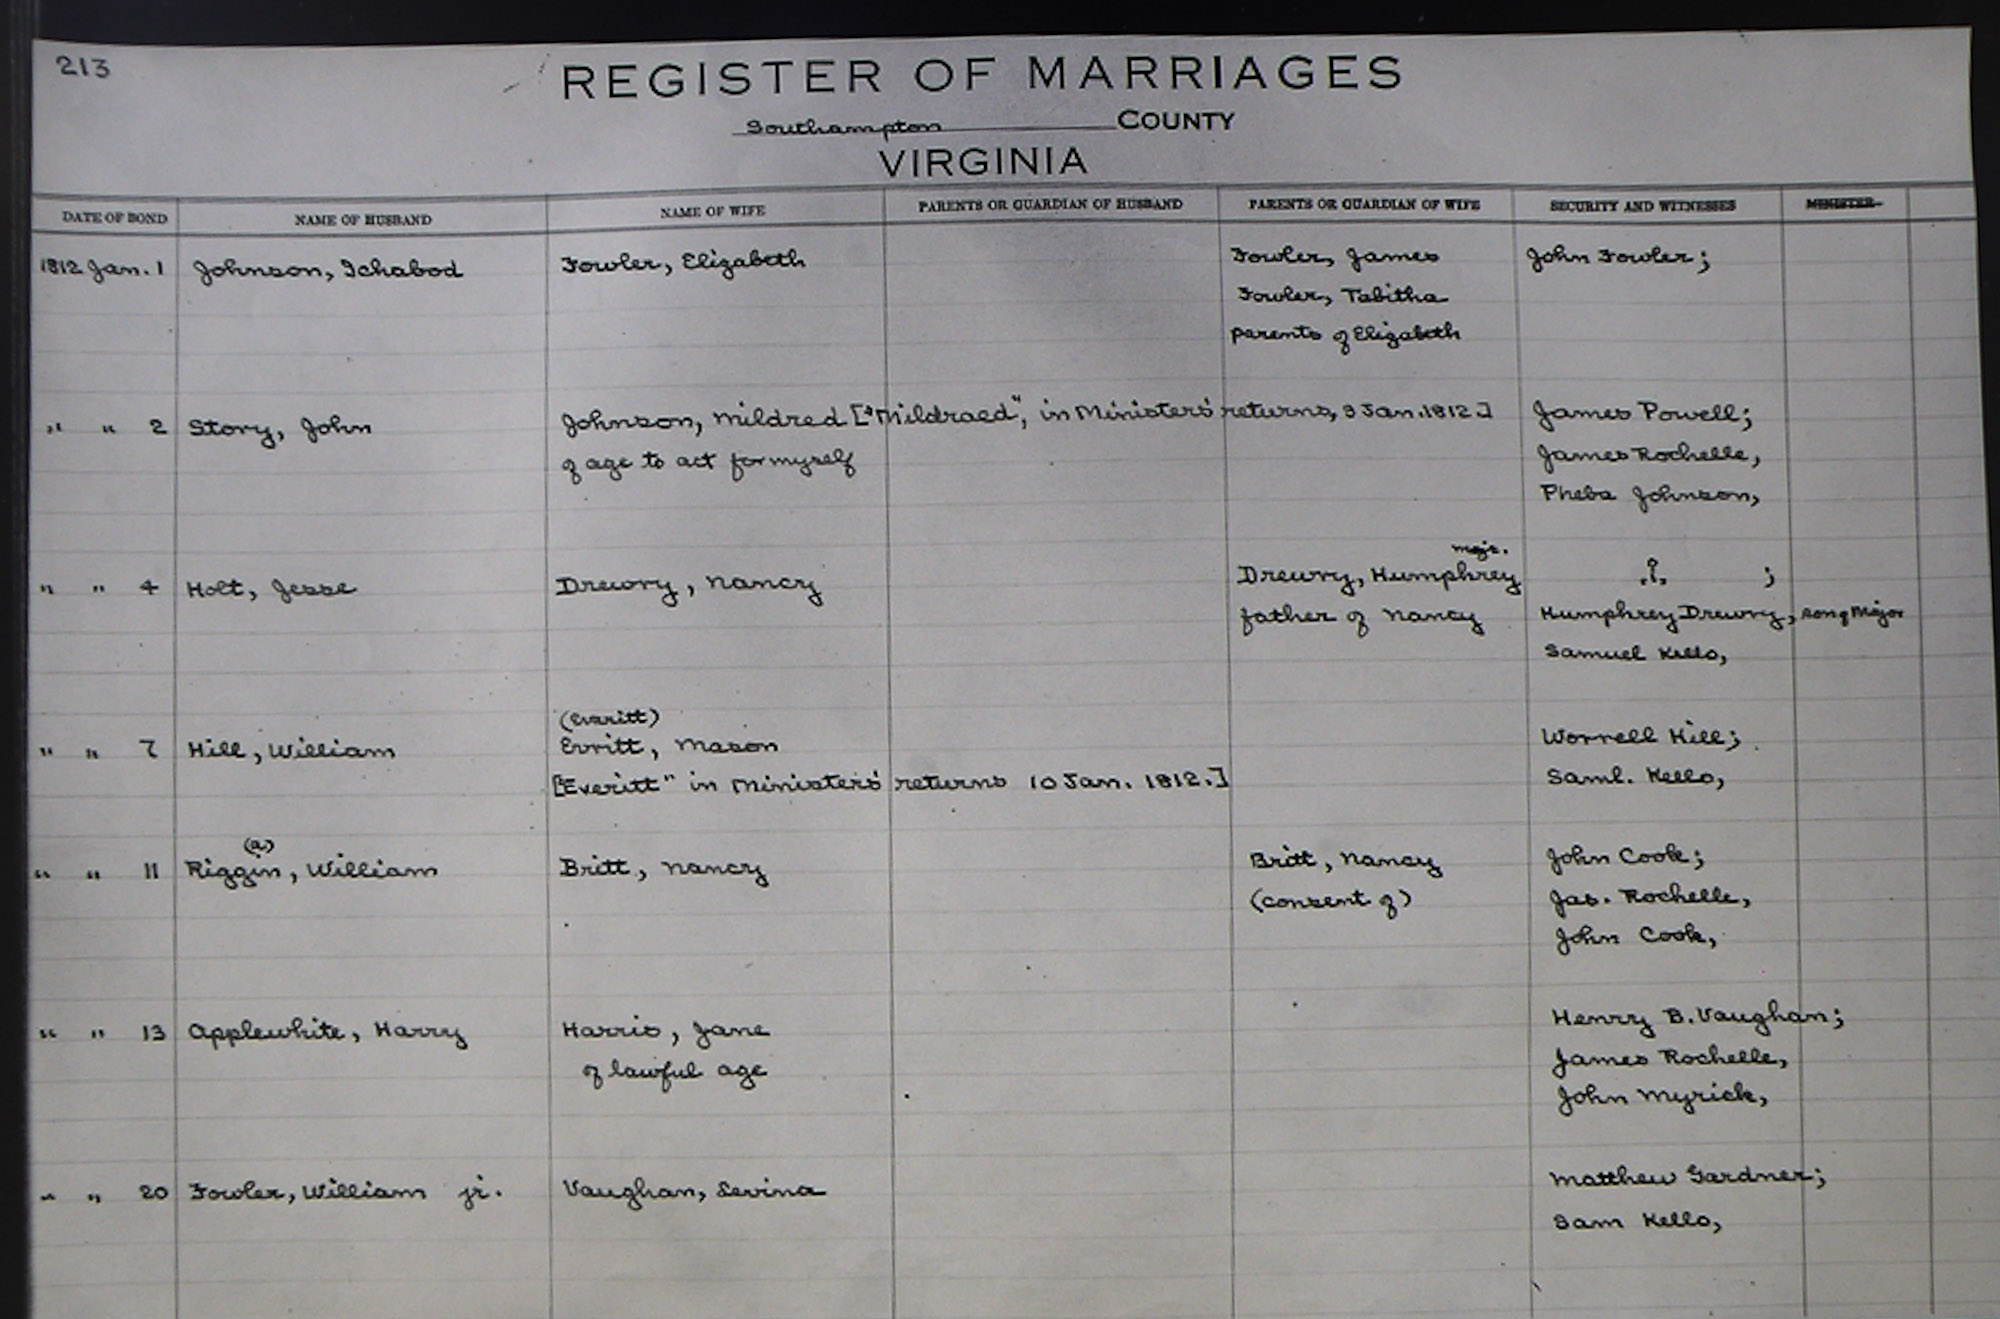 213
REGISTER OF MARRIAGES
Southampton COUNTY
VIRGINIA
DATE OF BOND NAME OF HUSBAND NAME OF WIFE PARENTS OR GUARDIAN OF HUSBAND PARENTS OR GUARDIAN OF WIFE SECURITY AND WITNESSES MINISTER
1812 Jan. 1 Johnson, Ichabod Fowler, Elizabeth Fowler, James John Fowler;
Fowler, Tabitha
parents of Elizabeth
" " 2 Story, John Johnson, Mildred ["Mildraed", in Ministers' returns, 3 Jan. 1812.] James Powell;
of age to act for myself James Rochelle,
Pheba Johnson,
majr.
" " 4 Holt, Jesse Drewry, Nancy Drewry, Humphrey .?. ;
father of Nancy Humphrey Drewry, son of Major
Samuel Kello,
(Evaritt)
" " 7 Hill, William Evritt, Mason Worrell Hill;
[Everitt" in Ministers' returns 10 Jan. 1812.] Saml. Kello,
(a)
" " 11 Riggin, William Britt, Nancy Britt, Nancy John Cook;
(consent of) Jas. Rochelle,
John Cook,
" " 13 Applewhite, Harry Harris, Jane Henry B. Vaughan;
of lawful age James Rochelle,
John Myrick,
" " 20 Fowler, William jr. Vaughan, Levina Matthew Gardner;
Sam Kello,